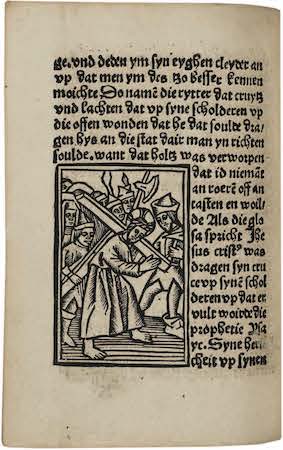 ge. vnd deden ym syn eyghen cleyder an
vp dat men ym des tzo besser kennen
moichte Do namē die rytter dat cruytz
vnd lachten dat vp syne scholderen vp
die offen wonden dat he dat soulde dra
gen bys an die stat dair man yn richten
soulde. want dat holtz was verworpen
dat id niemāt
an roerē off an
tasten en woil,
de Als die glo
sa spricht Jhe
sus cristꝰ was
dragen syn cru
ce vp synē schol
deren vp dat er
vult worde die
prophetie Ysa
yc. Syne her
cheit vp synen